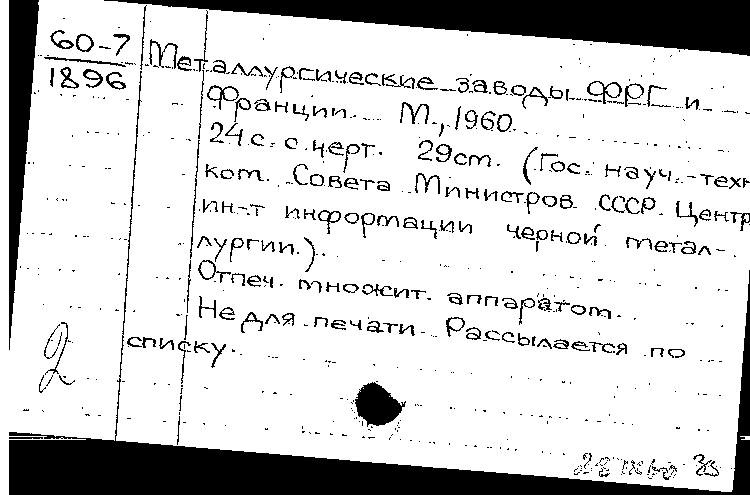 60-7
1896
Металлургические заводы ФРГ и
Франции. М., 1960.
24 с. с черт. 29см. (Гос. науч.-техн
ком. Совета Министров СССР. Центр
ин-т информации черной метал-
лургии.).
Отпеч. множит. аппаратом.
Не для печати. Рассылается по
списку.
2